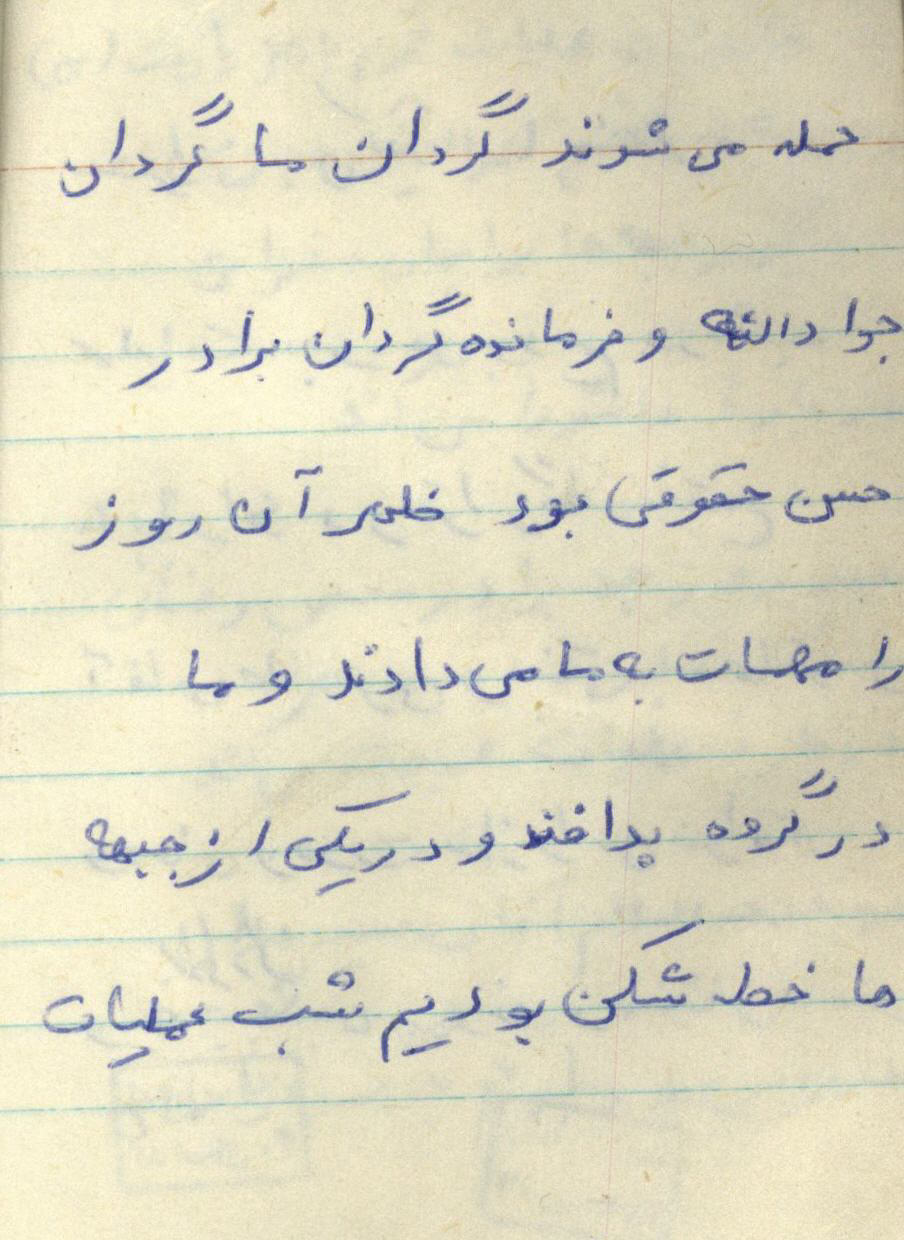 حمله می شوند گردان ما گردان
جواد الائمه و فرمانده گردان برادر
حسن حقوقی بود خلاصه آن روز
را مهمات به ما می دادند و ما
در گروه پدافند و در یکی از جبهه
ها خط شکن بودیم شب عملیات